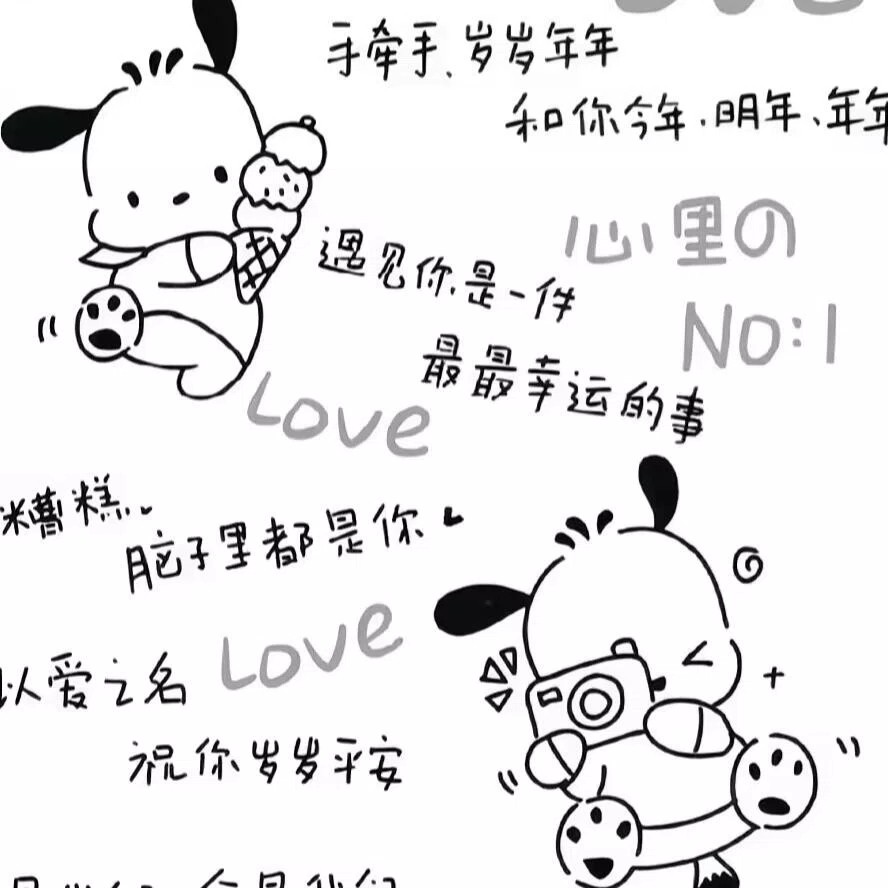 手牵手、岁岁年年
和你今年.明年、年年
心里の
NO:1
遇见你.是一件
最最幸运的事
Love
糟糕.
脑子里都是你.
Love
以爱之名
祝你岁岁平安